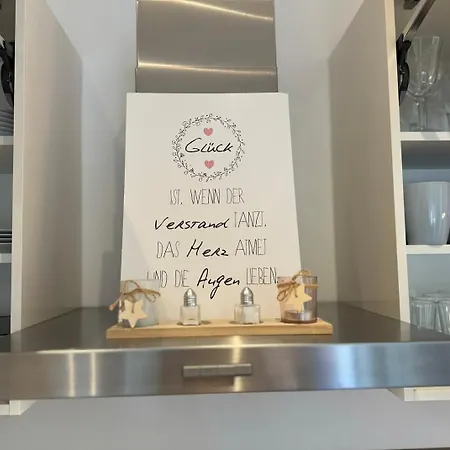 Glück
IST, WENN DER
Verstand TANZT,
DAS Herz ATMET
UND DIE Augen LIEBEN.